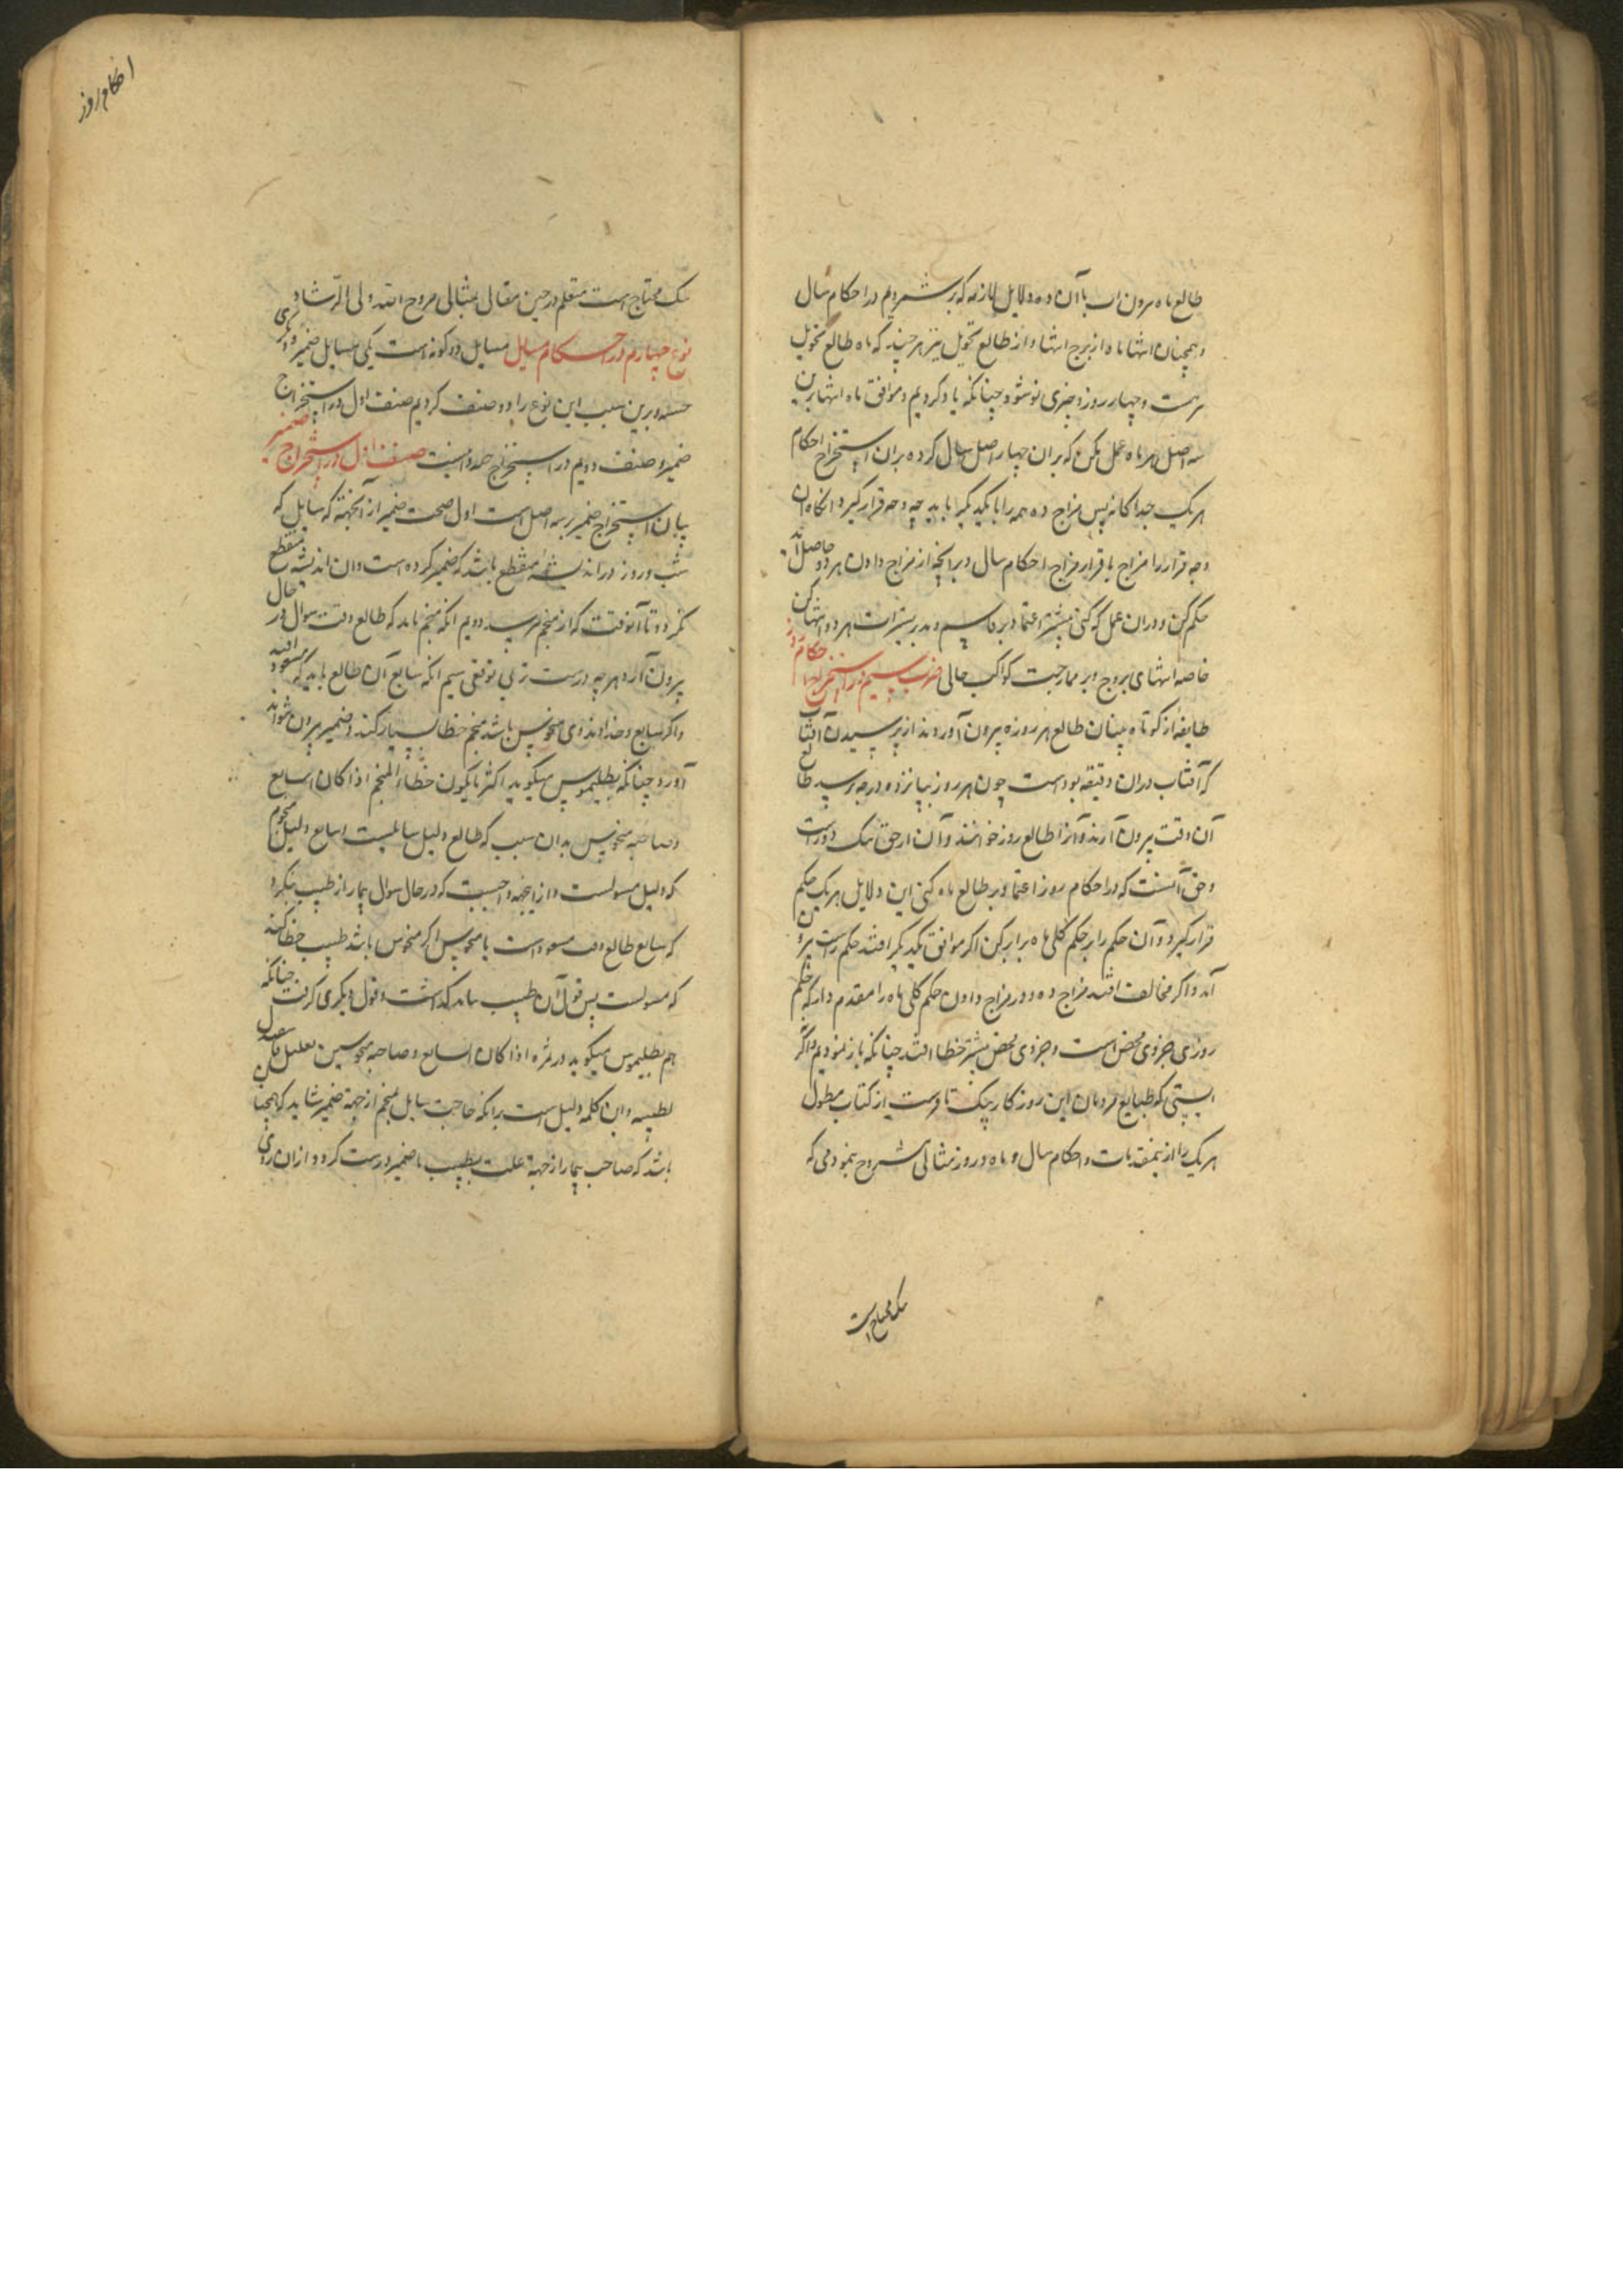 طالع ماه برون است با آن ده دلایل لازمه که برشمردیم در احکام سال
و همچنان انتها ماه از برج انتها و از طالع تحویل نیز هر چند که ماه طالع تحویل
بیست و چهار روز و جزی نو شود چنانکه یاد کردیم و موافق ماه انتها برین
سه اصل هر ماه عمل بکن که بران چهار اصل سال کرده بران استخراج احکام
هر یک جداگانه پس مزاج ده همه را با یکدیگر تا بدید چه وجه قرار گیرد آنگاه آن
وجه قرار را مزاج با قرار مزاج احکام سال و برآنچه از مزاج دادن هر دو حاصل آمد
حکم کن و دران عمل که کنی بیشتر اعتماد بر قاسم و مدبر تسیرات هر دو انتها کن
خاصه انتهای بروج و بر ممازجت کواکب حالی ضرب سیم در استخراج احکام روز
طایفه از کوتاه بینان طالع هر روزه بیرون آوردند از پرسیدن آفتاب
که آفتاب دران دقیقه بودست چون هر روز بپانزده درجه رسید طالع
آن وقت بیرون آرند و آنرا طالع روز خوانند و آن از حق نیک دورست
و حق آنست که در احکام روز اعتماد بر طالع ماه کنی این دلایل هر یک حکم
قرار گیرد و آن حکم را بر حکم کلی ماه برابر کن اگر موافق یکدیگر افتد حکم راست برون
آمد و اگر مخالفت افتد مزاج ده و در مزاج دادن حکم کلی ماه را مقدم دار که حکم
روزی جزوی محض است و جزوی محض بیشتر خطا افتد چنانکه باز نمودیم و اگر
که طبایع مردمان این روزکار تا از کتاب مطول
هر یک را از مقدمات و احکام سال و ماه و روز مثالی مشروح بنمودمی که
نیک محتاج است
احکام روز
نیک محتاج است متعلم در حین مقالی بمثالی مشروح الله ولی الرشاد
نوع چهارم در احکام مسایل مسایل دو گونه است یکی مسایل ضمیر و دیگری
و برین سبب این نوع را دو صنف کردیم صنف اول در استخراج
ضمیر و صنف دویم در استخراج صنف اول در استخراج ضمیر
بیان استخراج ضمیر بر سه اصل است اول صحت ضمیر از آنجهته که سایل که
شب و روز در اندیشه منقطع باشد که ضمیر کرده است و آن اندیشه منقطع
نگردد تا آنوقت که از منجم پرسد دویم آنکه منجم باید که طالع وقت سوال در حال
بیرون آرد هر چه درست تر بی توقفی سیم آنکه سابع آن طالع باید که مسعود افتد
و اگر سابع و خداوند وی منحوس باشد منجم خطا بسیار کند و ضمیر بیرون نتواند
آورد و چنانکه بطلیموس میگوید اکثر مایکون خطاء المنجم اذا کان السابع
و صاحبه منحوس بدان سبب که طالع دلیل سایلست و سابع دلیل منجم
که دلیل مسولست و از اینجهه واجبست که در حال سوال بیمار از طبیب بنگرد
که سابع طالع وقت مسعود است یا منحوس اگر منحوس باشد طبیب خطا کند
که مسولست پس قول آن طبیب بباید گذاشت و قول دیگری گرفت چنانکه
هم بطلیموس میگوید در ثمره اذا کان السابع و صاحبه منحوسین
بطبیبه و این کلمه دلیل است برآنکه حاجت سایل بمنجم از جهة ضمیر شاید که همچنان
باشد که صاحب بیمار از جهة علت بطبیب تا ضمیر درست گردد و از آن روی